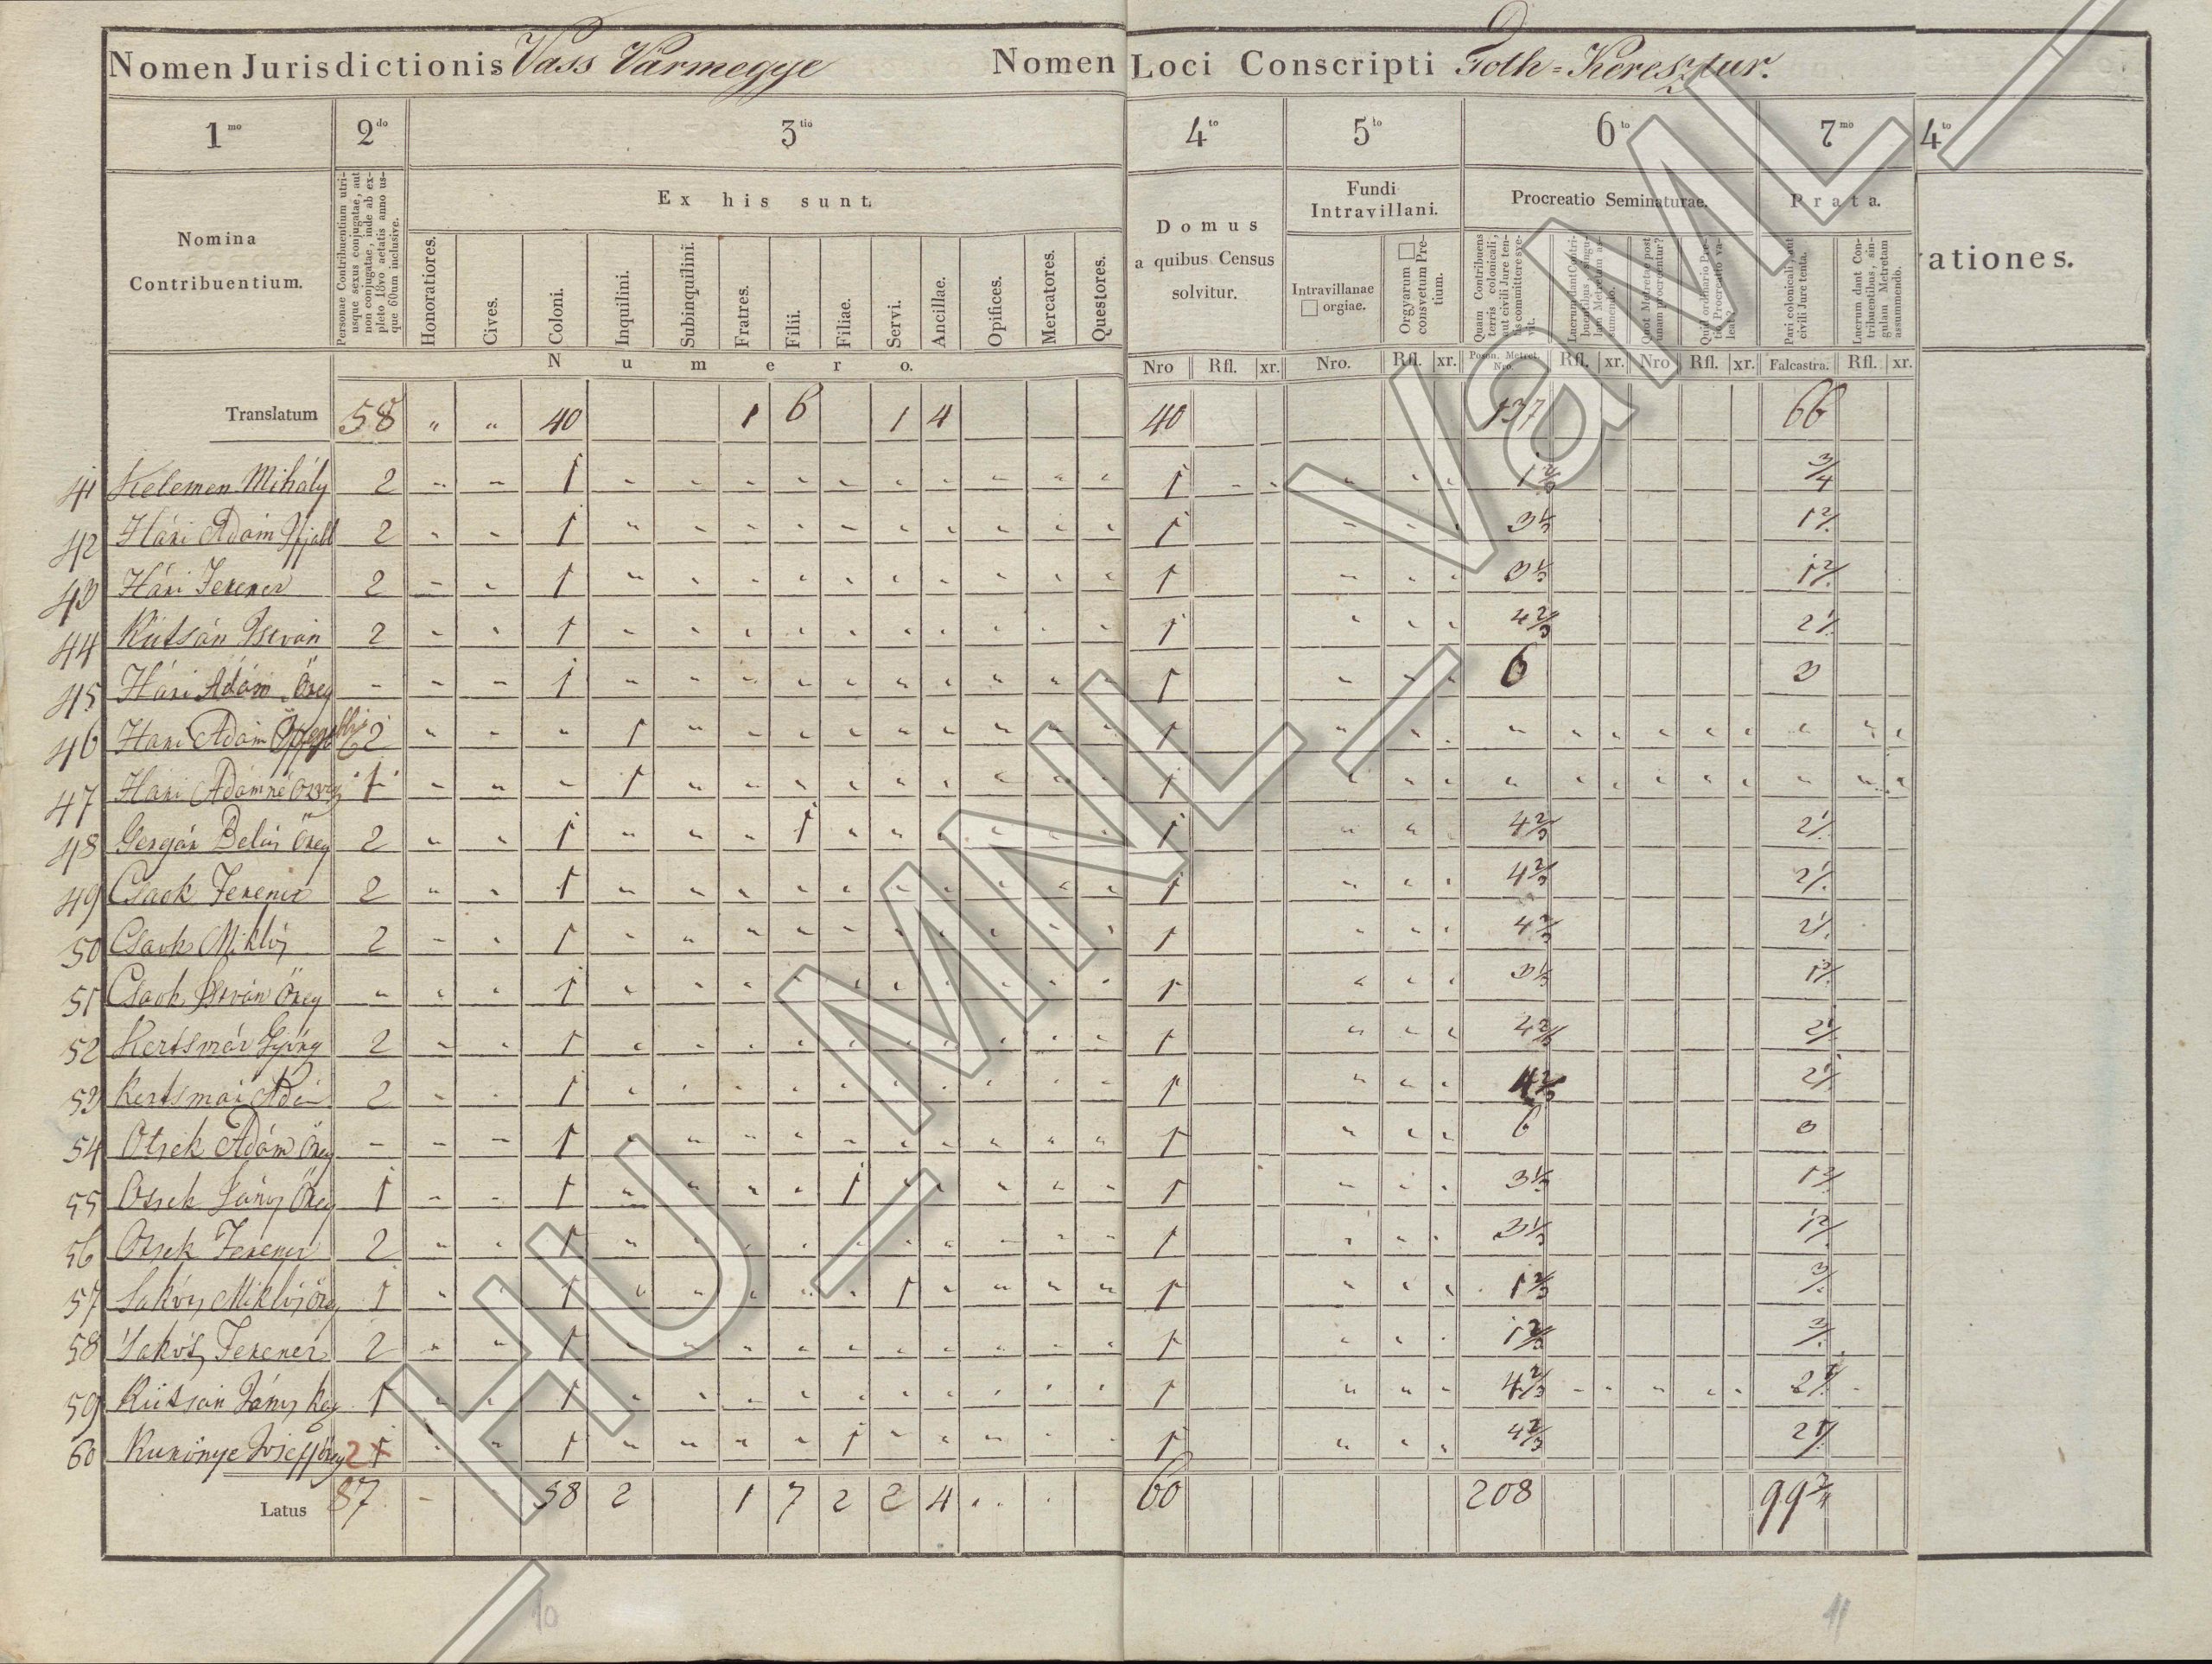 Nomen Jurisdictionis Vass Vármegye Nomen Loci Conscripti Toth=Keresztur.
1mo 2do 3tio 4to 5to 6to 7mo 4to
Nomina Contribuentium.
Personae Contribuentium utriusque sexus conjugatae, aut non conjugatae, inde ab expleto 18vo aetatis anno usque 60um inclusive.
Ex his sunt
Honoratiores. Cives. Coloni. Inquilini. Subinquilini. Fratres. Filii. Filiae. Servi. Ancillae. Opifices. Mercatores. Questores.
Numero.
Domus a quibus Census solvitur.
Nro Rfl. xr.
Fundi Intravillani.
Intravillanae □ orgiae.
Orgyarum □ consvetum Pretium.
Nro. Rfl. xr.
Procreatio Seminaturae.
Quam Contribuens terris colonicali, aut civili Jure tentis committere
Lucrum dant Contribuentibus singulam Metretam assumendo.
Quot Metretae post unam procreentur?
Quid ordinario Pretio Procreatio valeat?
Poson. Metret. Nro. Rfl. xr. Nro Rfl. xr.
Prata.
Pari colonicali, aut civili Jure tenta.
Lucrum dant Contribuentibus, singulam Metretam assumendo.
Falcastra. Rfl. xr.
ationes.
Translatum 58 " " 40 1 6 1 4 40 137 66
41 Kelemen Mihály 2 1 1 1 2/3 3/4
42 Hári Adám Ifjabb 2 1 1 3 1/3 1 2/.
43 Hári Ferencz 2 1 1 3 1/3 1 2/.
44 Kútsán István 2 1 1 4 2/3 2 1/.
45 Hári Adám Öreg - 1 1 6 3
46 Hári Adám 2 1 1
47 Hári Adámné Özvegy 1 1 1
48 Gergár Balás Öreg 2 1 1 1 4 2/3 2 1/.
49 Csaok Ferencz 2 1 1 4 2/3 2 1/.
50 Csaok Miklós 2 1 1 4 2/3 2 1/.
51 Csaok István Öreg 1 1 3 1/3 1 2/.
52 Kertsmár György 2 1 1 4 2/3 2 1/.
53 Kertsmár Adám 2 1 1 4 2/3 2 1/.
54 Otsek Adám Öreg - 1 1 6 3
55 Otsek János Öreg 1 1 1 1 3 1/3 1 2/.
56 Otsek Ferencz 2 1 1 3 1/3 1 2/.
57 Sakós Miklós Öreg 1 1 1 1 1 2/3 3/.
58 Sakós Ferencz 2 1 1 1 2/3 3/.
59 Kútsán János Öreg 1 1 1 4 2/3 2 1/.
60 Kukonye Josef Öreg 2 1 1 1 1 4 2/3 2 1/.
Latus 87 - 58 2 1 7 2 2 4 60 208 99 3/4
10 11
HU_MNL_VaML_